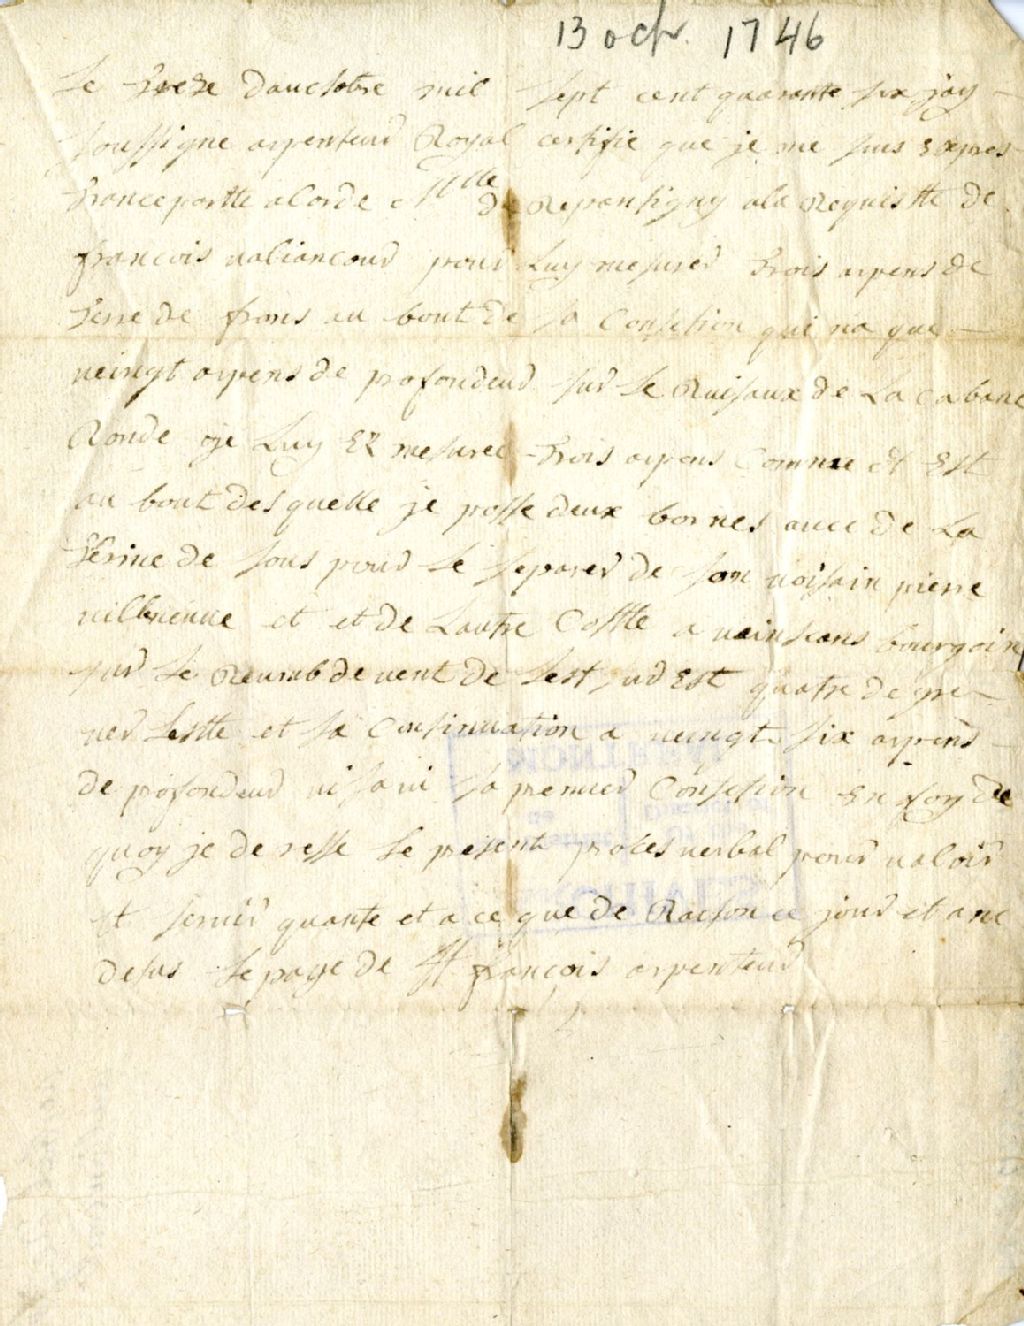 13 octr. 1746
Le treze dauctobre mil sept cent quarante six jay
soussigne arpenteur Royal certifie que je me suis expres
transportte alorde Mlle De Repantigny ala Requistte de
francois valiancour pour Luy mesurer trois arpens de
terre de frons au bout de sa Consetion qui na que
veingt arpens de profondeur sur le Ruisaux de La Cabane
Ronde oje Luy Ez mesuree trois arpens Comme et Est
au bout desquelle je posse deux bornes avec de La
terine de sous pour le separer de son voisain pierre
vilbnenue et et de Lautre Costte a vain sans bourgoin
sur le Reumb de vent de Lest sud Est quatre degre
ver Lestte et sa Continuation a veingt six arpens
de profondeur ni sa premier Consetion En foy de
quoy je deresse le present proces verbal pour valoir
et servir quante et a ce que de Raison ce jour et ane
desus Lepage de St francois arpenteur